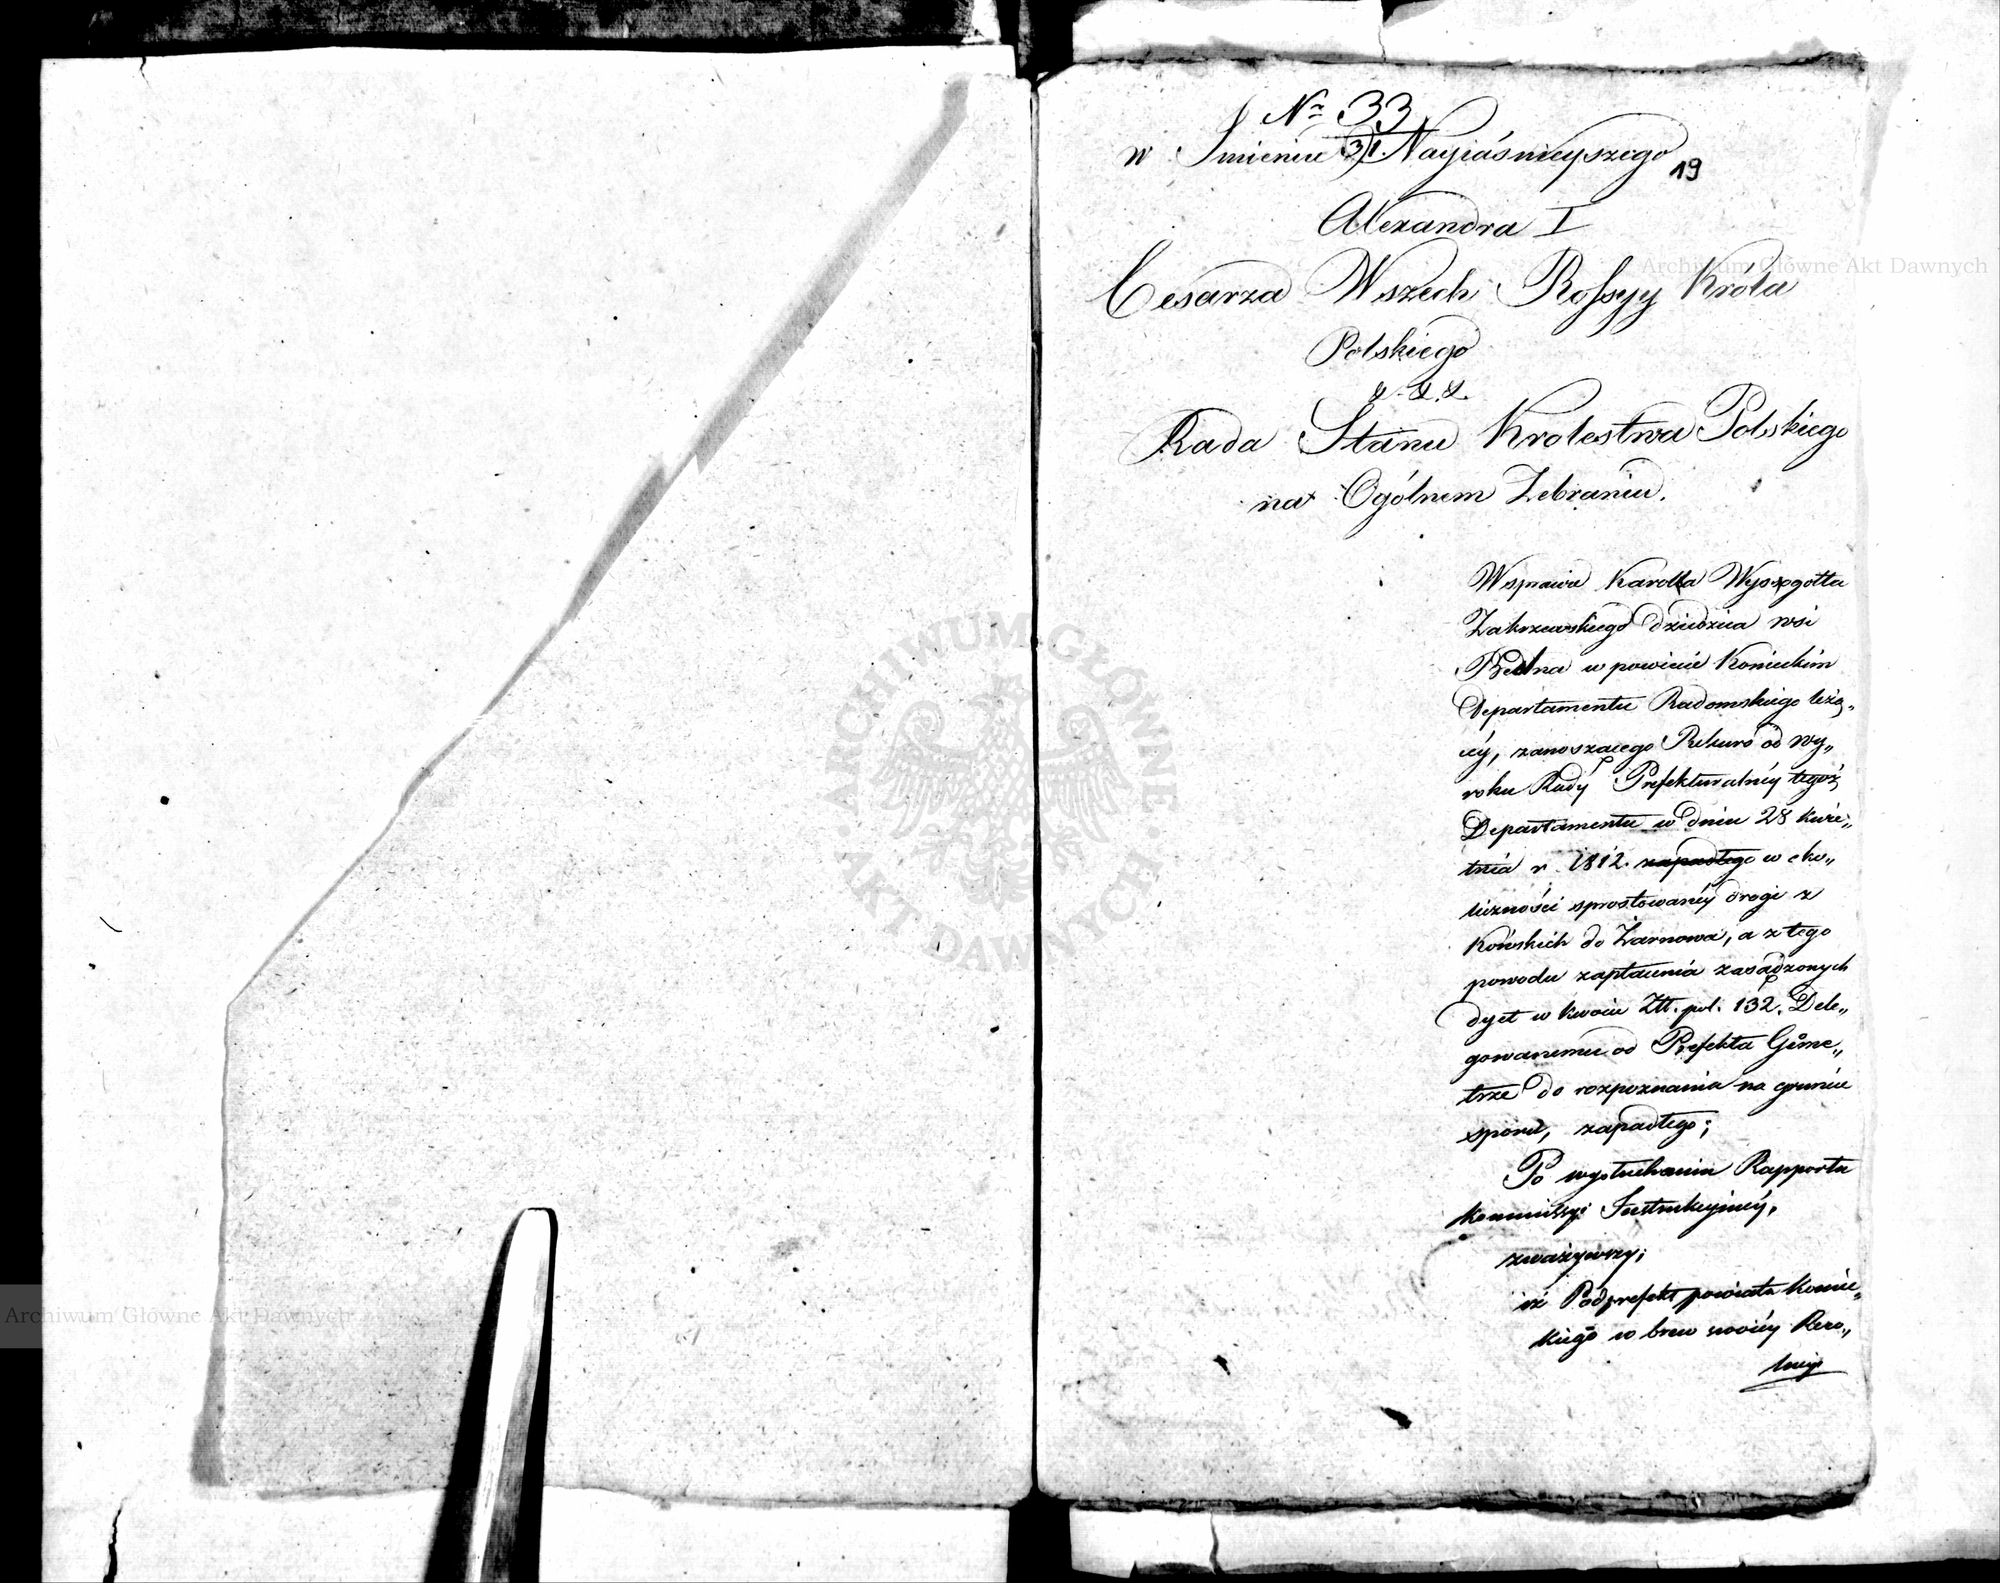 Nro 33
w Imieniu 3/1. Nayiaśnieyszego
19
Alexandra I
Cesarza Wszech Rossyy Króla
Polskiego
&. &. &.
Rada Stanu Krolestwa Polskiego
na Ogólnem Zebraniu.
Wsprawie Karolla Wyssogotta
Zakrzewskiego dziedzica wsi
Bedlna w powiecie Konieckim
Departamentu Radomskiego leżą„
cey, zanoszącego Rekurs od wy„
roku Rady Prefekturalnéy tegoż
Departamentu w dniu 28 kwie„
tnia r. 1812. zapadłego w oko„
liczności sprostowanéy drogi z
Końskich do Żarnowa, a z tego
powodu zapłacenia zasądzonych
dyet w kwocie Złł. pol. 132. Dele„
gowanemu od Prefekta Geome„
trze do rozpoznania na gruncie
sporu, zapadłego;
Po wysłuchaniu Rapportu
Kommissyi Instrukcyinéy,
zważywszy;
iż Podprefekt powiatu Konie„
ckiego w brew swoiéy Rezo„
lucyi
Archiwum Główne Akt Dawnych
Archiwum Główne Akt Dawnych
ARCHIWUM GŁÓWNE AKT DAWNYCH